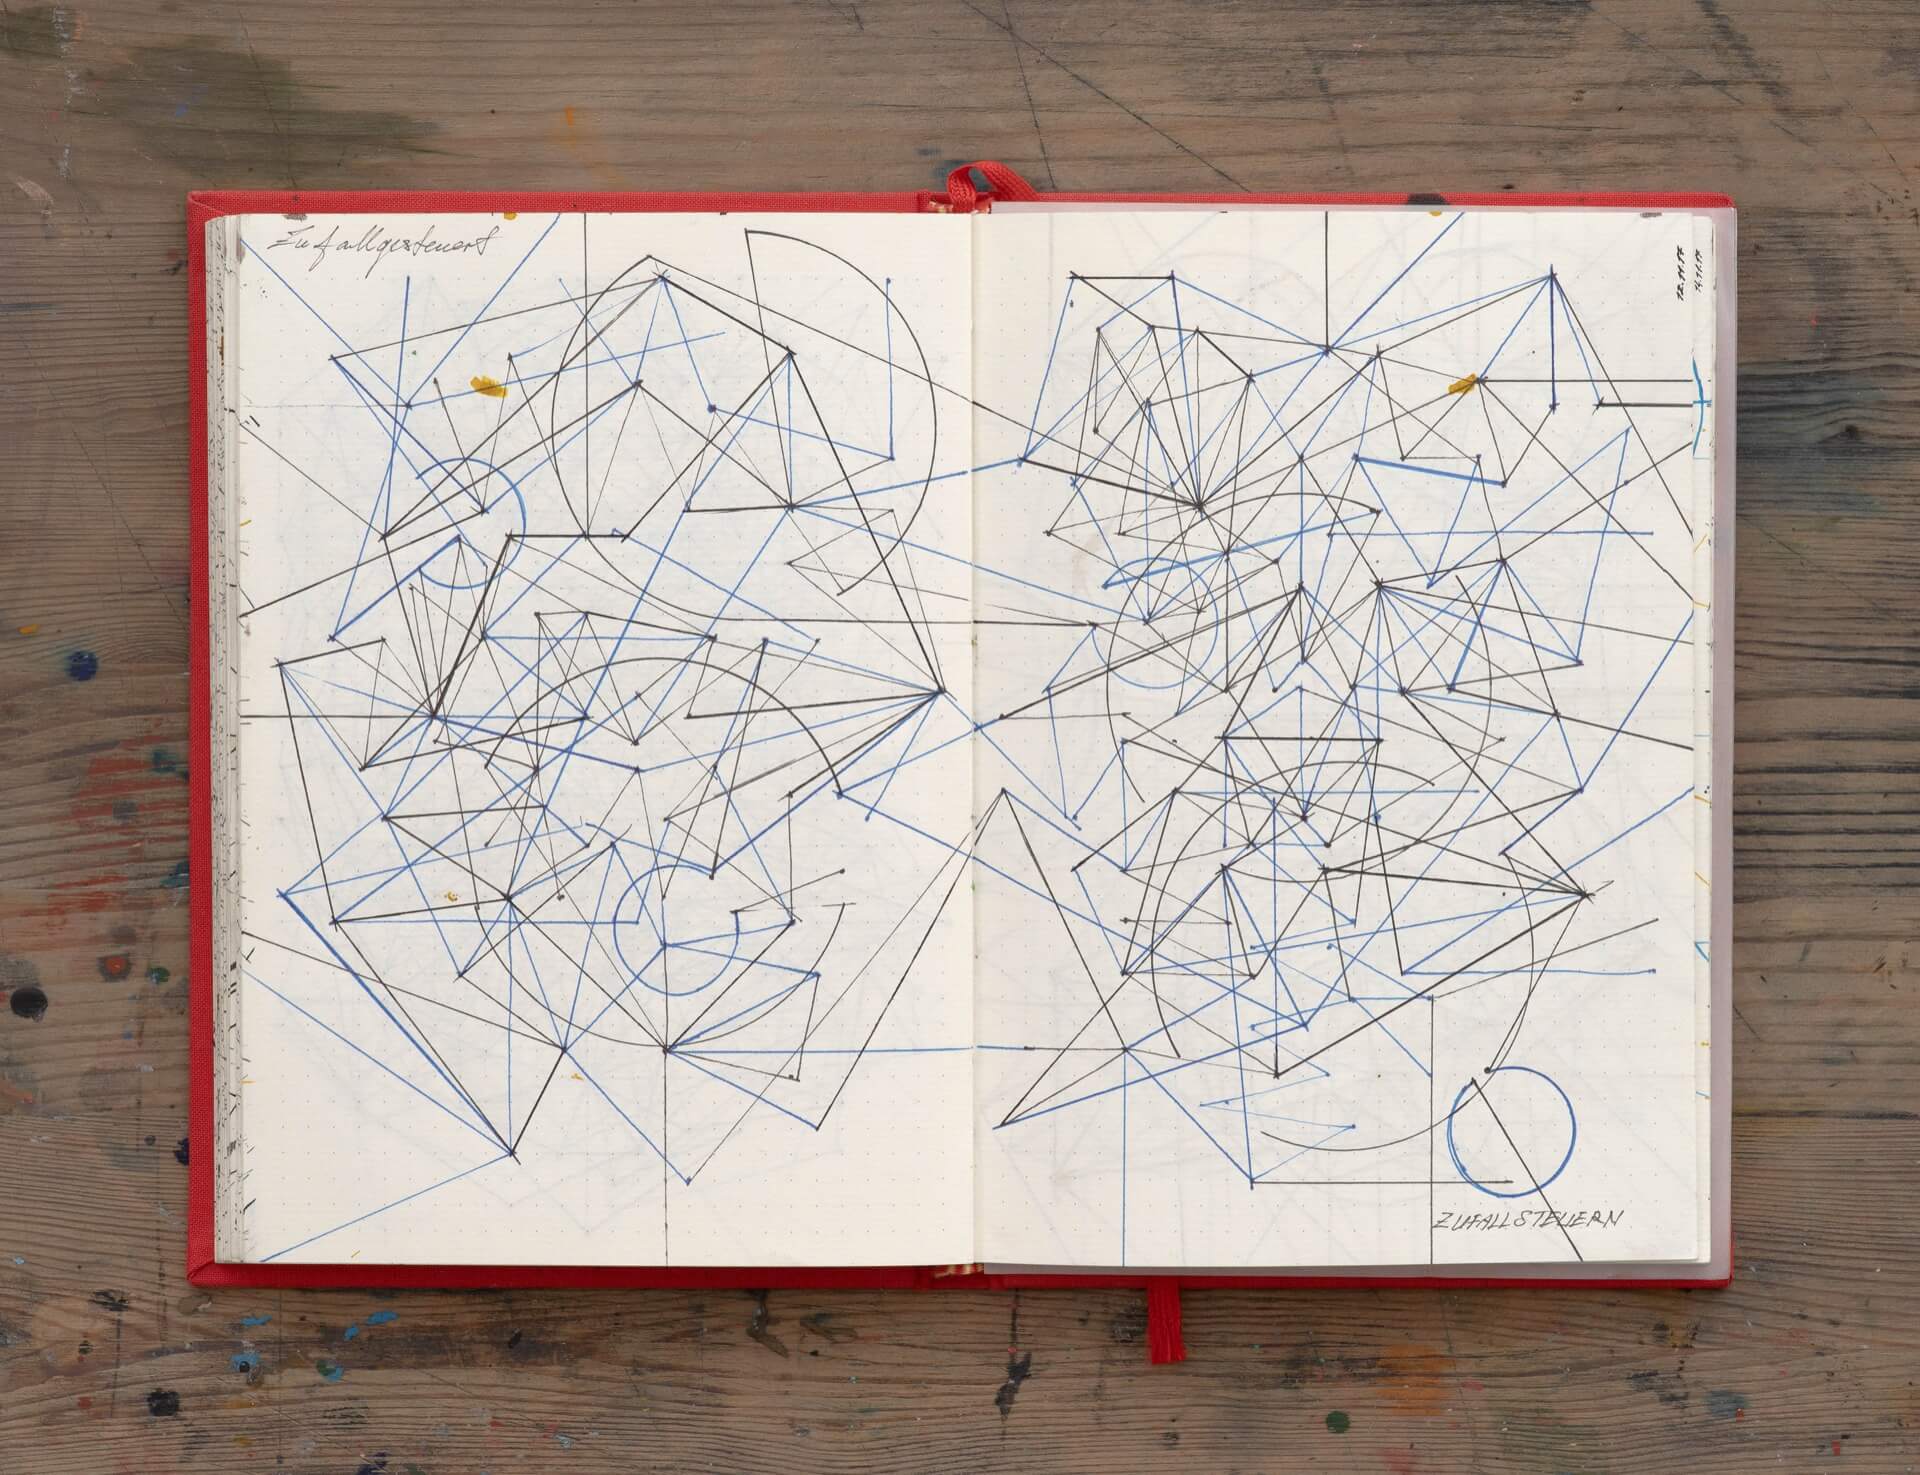 Zufallgesteuert
12.11.17
14.11.17
ZUFALLSTEUERN